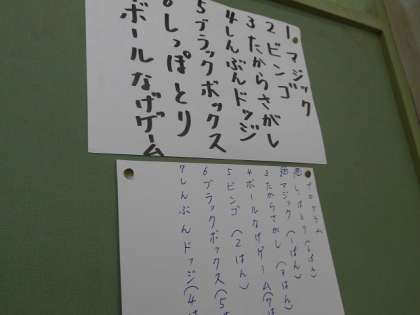 1 マジック
2 ビンゴ
3 たからさがし
4 しんぶんドッジ
5 ブラックボックス
6 しっぽとり
ボールなげゲーム
プログラム
マジック(1はん)
3 たからさがし(
4 ボールなげゲーム(
5 ビンゴ(2はん)
6 ブラックボックス(5
7 しんぶんドッジ(4は